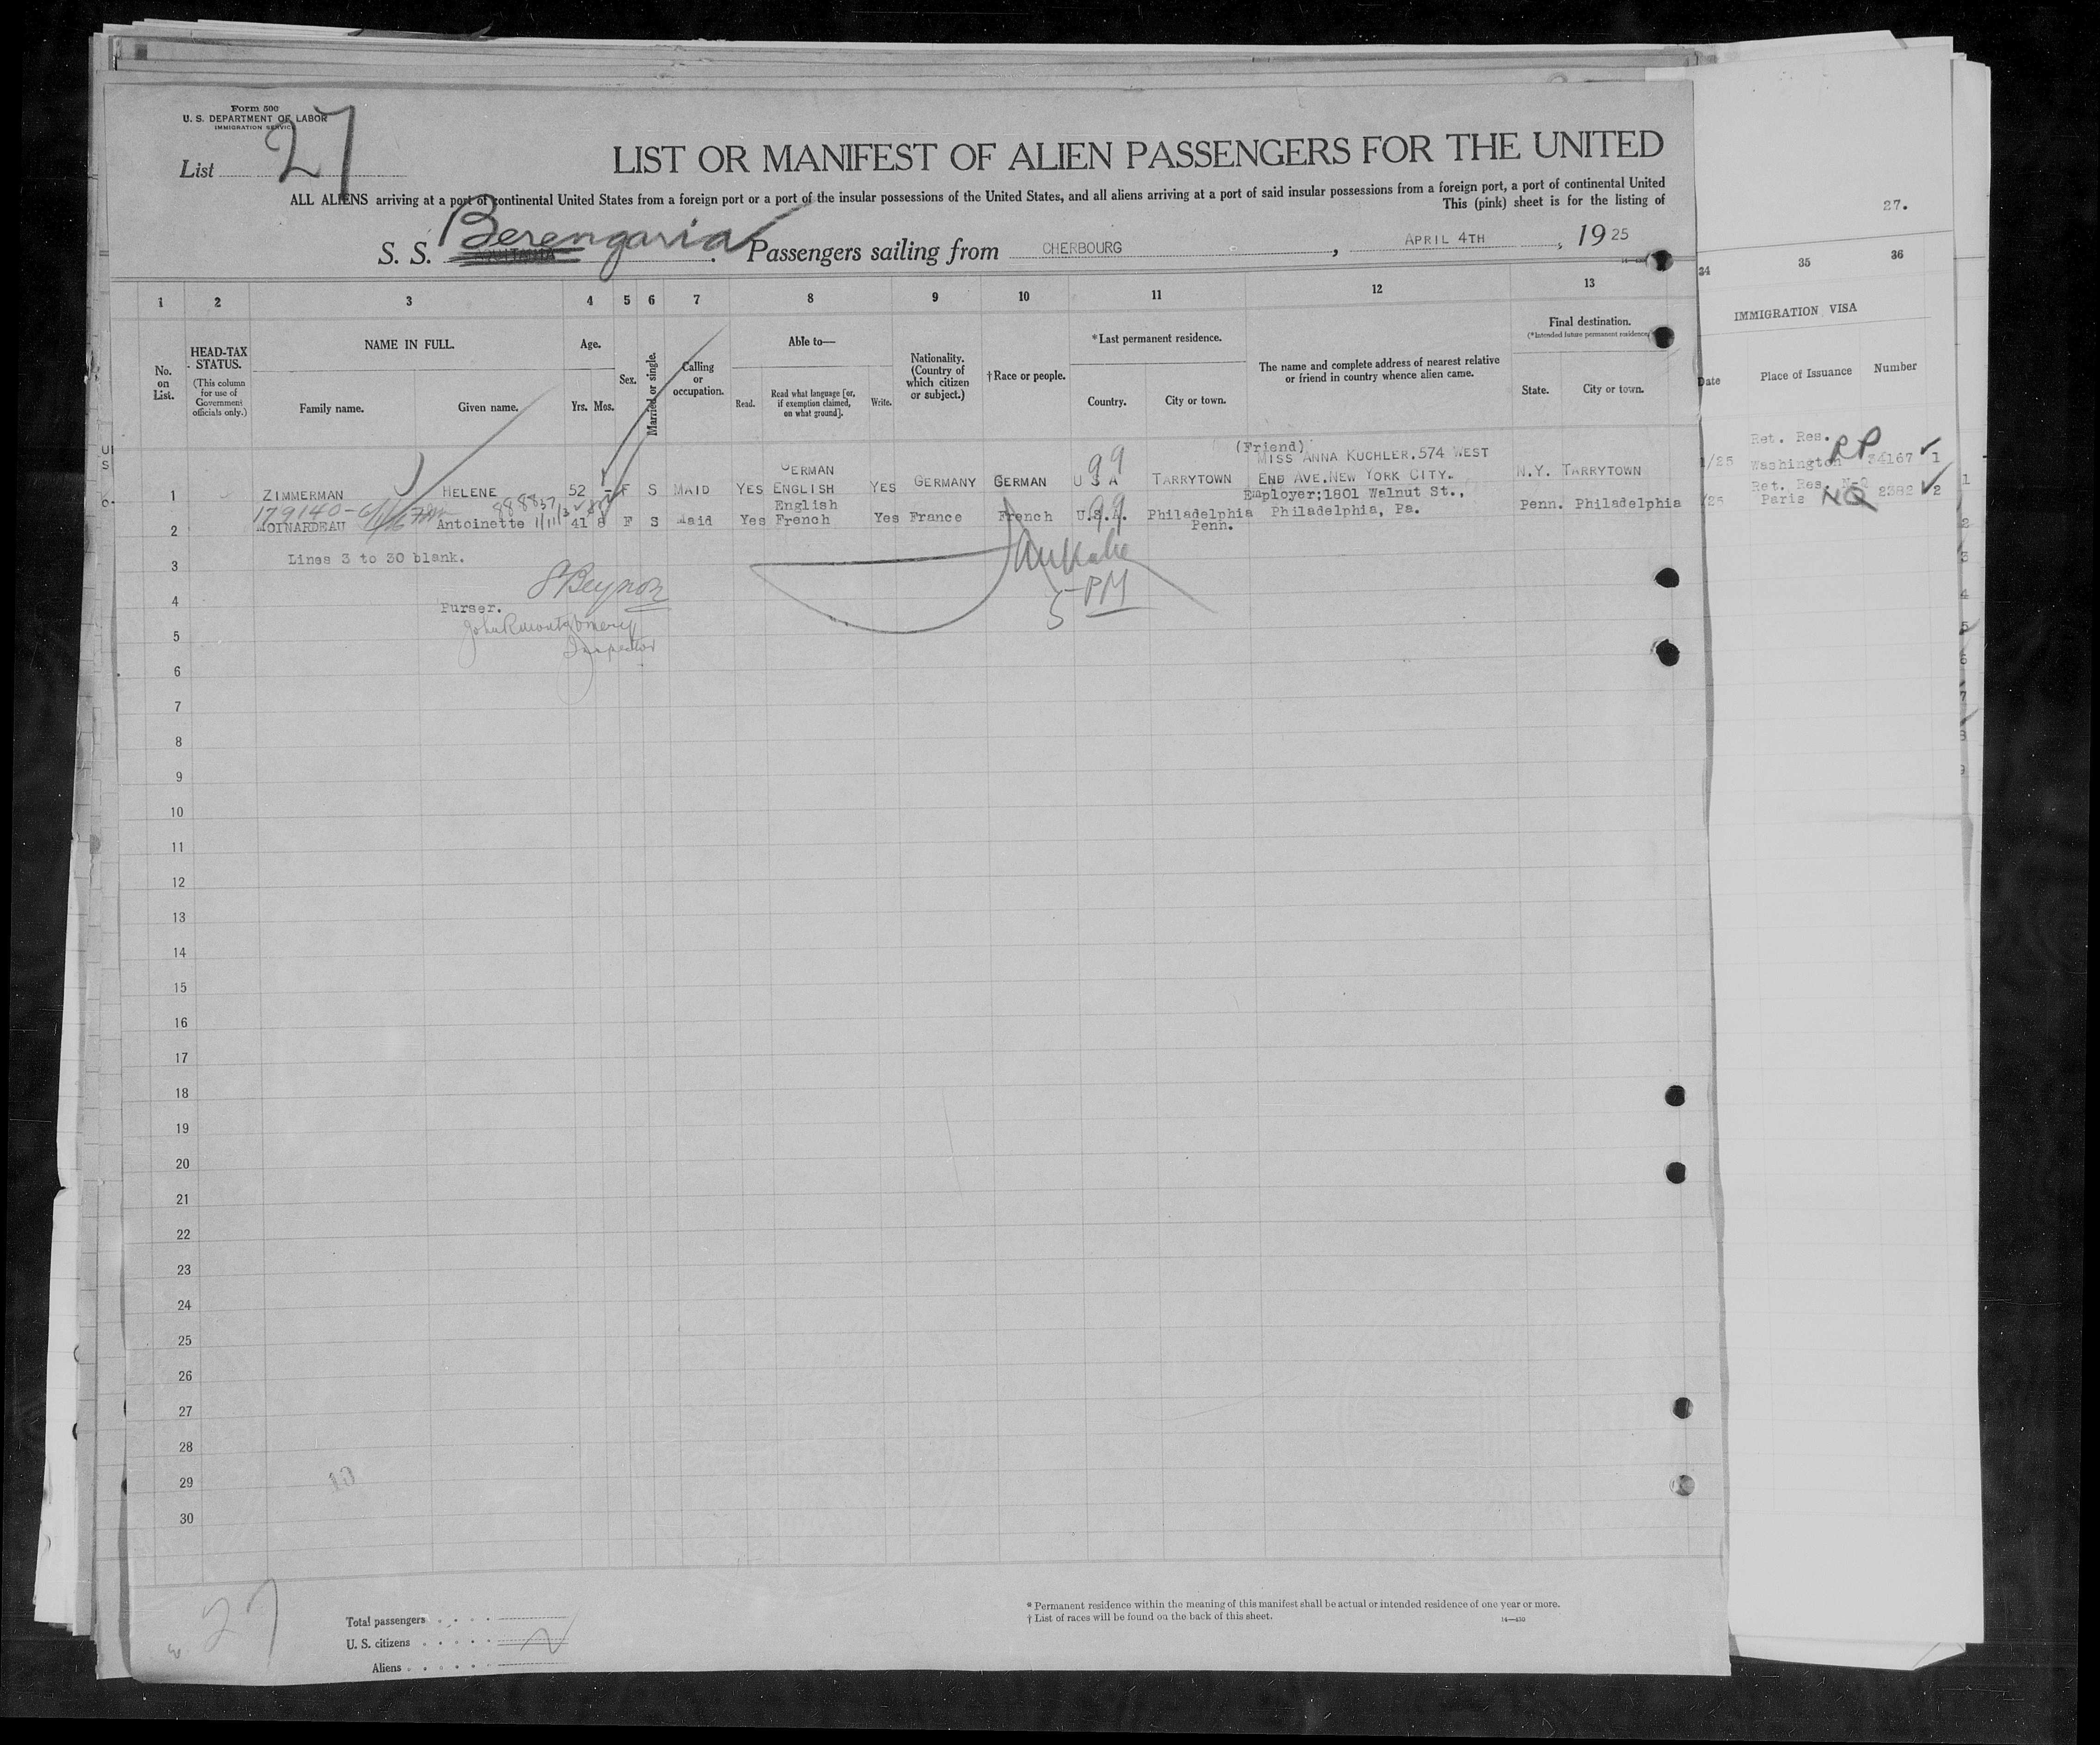 Form 500
U. S. DEPARTMENT OF LABOR
IMMIGRATION SERVICE
List 27
LIST OR MANIFEST OF ALIEN PASSENGERS FOR THE UNITED
ALL ALIENS arriving at a port of continental United States from a foreign port or a port of the insular possessions of the United States, and all aliens arriving at a port of said insular possessions from a foreign port, a port of continental United
This (pink) sheet is for the listing of
S. S. Berengaria Passengers sailing from CHERBOURG, APRIL 4TH, 1925
27.
1 2 3 4 5 6 7 8 9 10 11 12 13
34 35 36
No. on List.
HEAD-TAX STATUS.
(This column for use of Government officials only.)
NAME IN FULL.
Family name. Given name.
Age.
Yrs. Mos.
Sex.
Married or single.
Calling or occupation.
Able to—
Read. Read what language [or, if exemption claimed, on what ground]. Write.
Nationality. (Country of which citizen or subject.)
†Race or people.
*Last permanent residence.
Country. City or town.
The name and complete address of nearest relative or friend in country whence alien came.
Final destination.
(*Intended future permanent residence)
State. City or town.
IMMIGRATION VISA
Date Place of Issuance Number
1 ZIMMERMAN HELENE 52 - F S MAID YES GERMAN ENGLISH YES GERMANY GERMAN U S A TARRYTOWN (Friend) MISS ANNA KUCHLER.574 WEST END AVE.NEW YORK CITY. N.Y. TARRYTOWN
/25 Ret. Res. Washington RP 34167 1
179140-
888837
99
2 MOINARDEAU Antoinette 41 8 F S Maid Yes English French Yes France French U.S.A. Philadelphia Penn. Employer;1801 Walnut St., Philadelphia, Pa. Penn. Philadelphia
/25 Ret. Res. N-Q Paris NQ 2382 2
99
3 Lines 3 to 30 blank.
4 Purser.
5 PM
5 John R Montgomery
Inspector
6
7
8
9
10
11
12
13
14
15
16
17
18
19
20
21
22
23
24
25
26
27
28
29
30
27
Total passengers
U. S. citizens
Aliens
* Permanent residence within the meaning of this manifest shall be actual or intended residence of one year or more.
† List of races will be found on the back of this sheet.
14—430